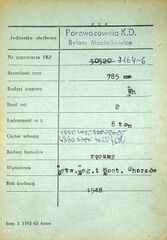 P K P
Jednostka służbowa
Parowozownia K.D.
Bytom Maciejkowice
Nr inwentarza PKP 50520 2164-6
Szerokość toru 785 mm
Rodzaj wagonu Wh
Ilość osi 2
Ładowność w t. 8 ton
Ciężar własny
Rodzaj hamulca ręczny
Wytwórnia Wytw.Wag.i Most. Chorzów
Rok budowy 1948